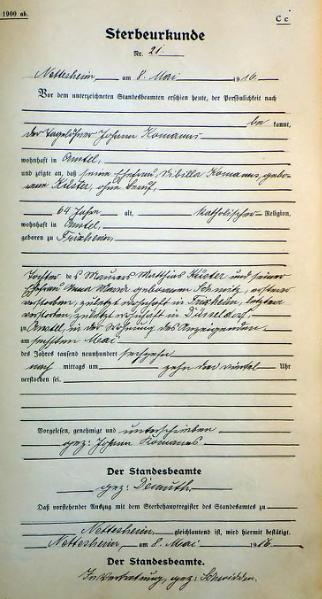 1900 ab.
C c
Sterbeurkunde
Nr. 21
Nettesheim, am 8. Mai 1916
Vor dem unterzeichneten Standesbeamten erschien heute, der Persönlichkeit nach
be kannt,
der Tagelöhner Johann Romanns
wohnhaft in
und zeigte an, daß seine Ehefrau, Sibilla Romanns, gebo-
rene Küster, ohne Beruf,
64 Jahre alt, katholischer Religion,
wohnhaft in
geboren zu Frixheim,
Tochter des Maurers Matthias Küster und seiner
Ehefrau Anna Maria geborenen Schmitz, ersterer
verstorben, zuletzt wohnhaft in Frixheim, letztere
verstorben, zuletzt wohnhaft in Düsseldorf
zu in der Wohnung des Anzeigenden,
am sechsten Mai
des Jahres tausend neunhundert sechzehn
nach mittags um zehn drei viertel Uhr
verstorben sei.
Vorgelesen, genehmigt und unterschrieben
gez: Johann Romanns
Der Standesbeamte
gez:
Daß vorstehender Auszug mit dem Sterbehauptregister des Standesamtes zu
Nettesheim gleichlautend ist, wird hiermit bestätigt.
Nettesheim, am 8. Mai 1916.
Der Standesbeamte.
In Vertretung, gez: